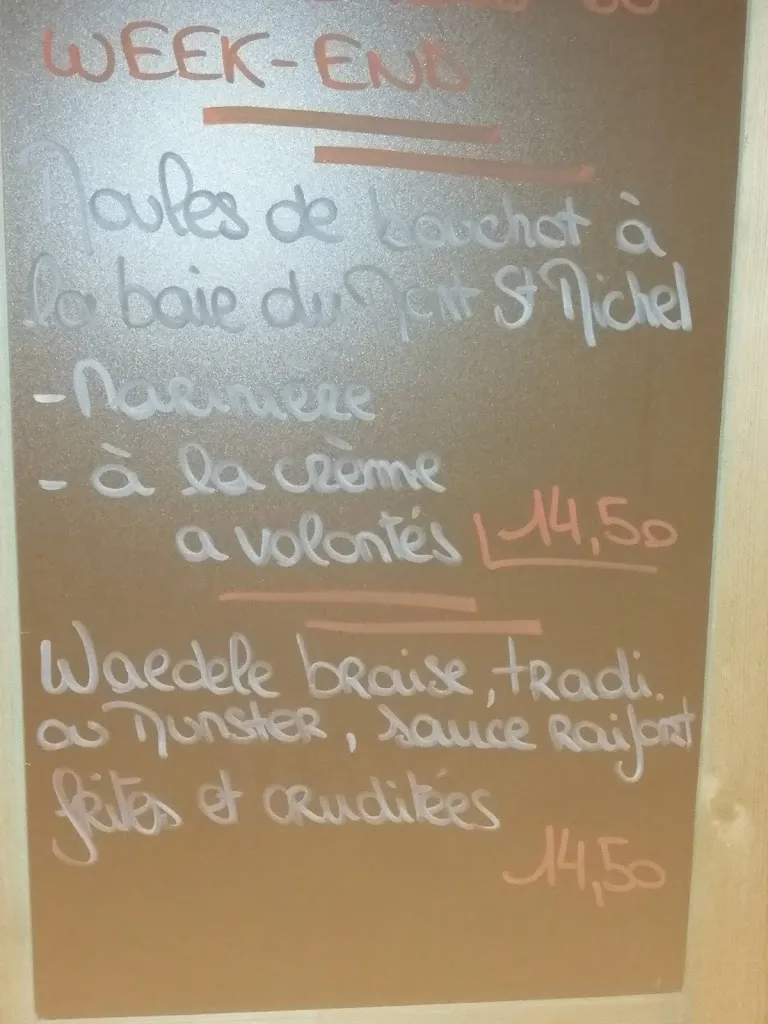 WEEK-END
Moules de bouchot à
la baie du Mont St Michel
- Marinière
- à la crème
a volontés 14,50
Waedele braise, tradi.
ou Munster, sauce raifort
frites et cruditées
14,50